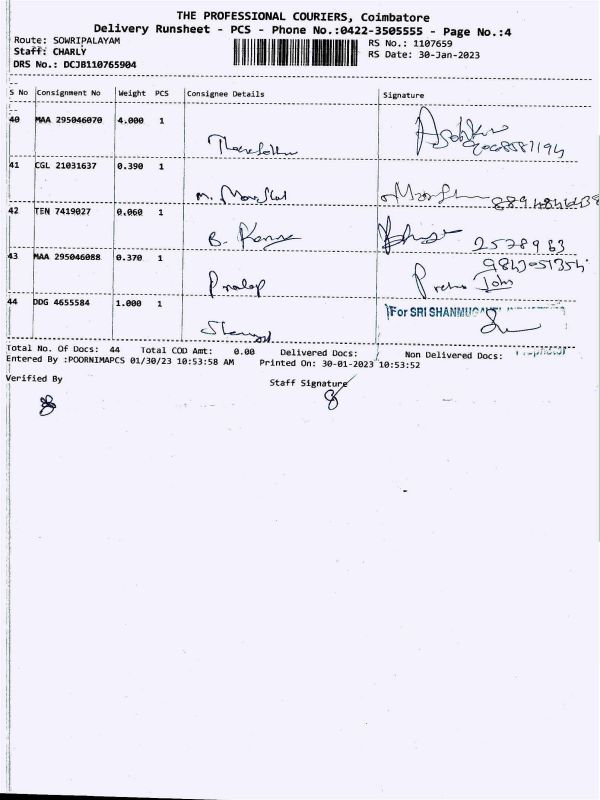 THE PROFESSIONAL COURIERS, Coimbatore
Delivery Runsheet - PCS - Phone No.:0422-3505555 - Page No.:4
Route: SOWRIPALAYAM
RS No.: 1107659
Staff: CHARLY
RS Date: 30-Jan-2023
DRS No.: DCJB110765904
S No Consignment No Weight PCS Consignee Details Signature
40 MAA 295046070 4.000 1
41 CGL 21031637 0.390 1
42 TEN 7419027 0.060 1
B.
2528963
43 MAA 295046088 0.370 1
Pratap
John
44 DDG 4655584 1.000 1
For SRI SHANMUGA
Total No. Of Docs: 44 Total COD Amt: 0.00 Delivered Docs: Non Delivered Docs:
Entered By :POORNIMAPCS 01/30/23 10:53:58 AM Printed On: 30-01-2023 10:53:52
Verified By Staff Signature